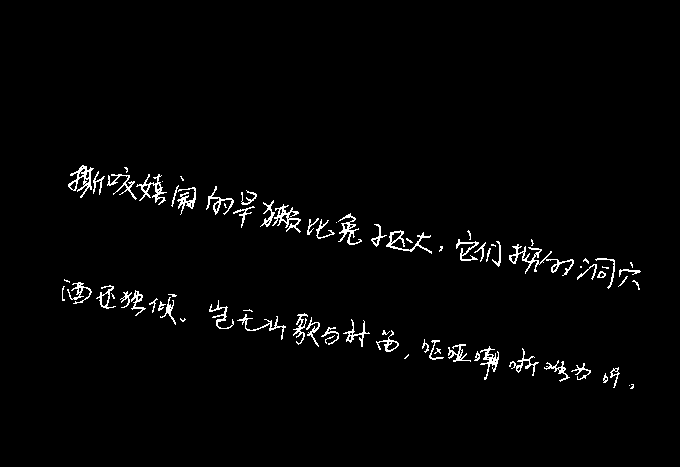 撕咬嬉闹的旱獭比兔子还大，它们挖的洞穴
酒还独倾。岂无山歌与村笛，呕哑嘲哳难为听。